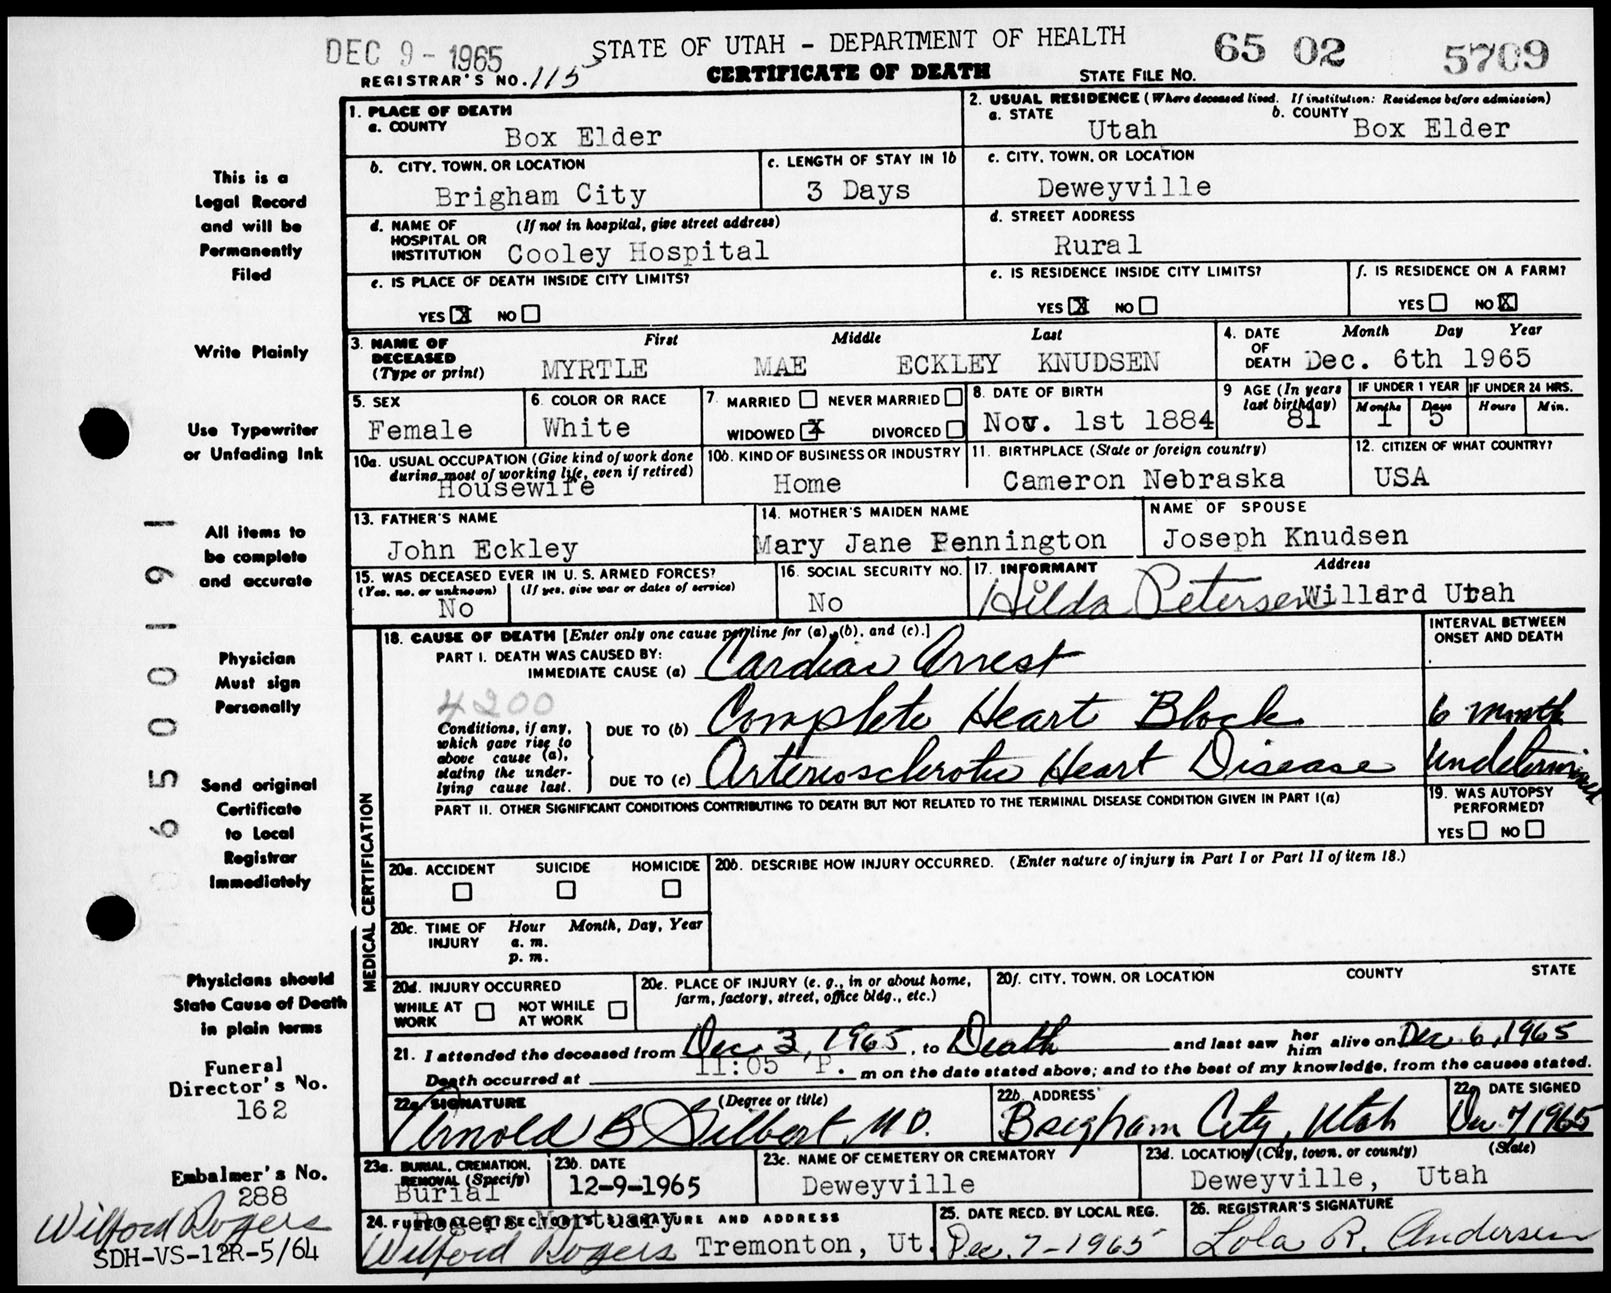 DEC 9 - 1965 STATE OF UTAH - DEPARTMENT OF HEALTH 65 02 5709
REGISTRAR'S NO. 115 CERTIFICATE OF DEATH STATE FILE NO.
1. PLACE OF DEATH
a. COUNTY
Box Elder
2. USUAL RESIDENCE (Where deceased lived. If institution: Residence before admission)
a. STATE Utah b. COUNTY Box Elder
b. CITY, TOWN, OR LOCATION
Brigham City
c. LENGTH OF STAY IN 1b
3 Days
c. CITY, TOWN, OR LOCATION
Deweyville
d. NAME OF HOSPITAL OR INSTITUTION (If not in hospital, give street address)
Cooley Hospital
d. STREET ADDRESS
Rural
e. IS PLACE OF DEATH INSIDE CITY LIMITS?
YES X NO
e. IS RESIDENCE INSIDE CITY LIMITS?
YES X NO
f. IS RESIDENCE ON A FARM?
YES NO X
3. NAME OF DECEASED (Type or print)
First Middle Last
MYRTLE MAE ECKLEY KNUDSEN
4. DATE OF DEATH Month Day Year
Dec. 6th 1965
5. SEX
Female
6. COLOR OR RACE
White
7. MARRIED NEVER MARRIED
WIDOWED X DIVORCED
8. DATE OF BIRTH
Nov. 1st 1884
9 AGE (In years last birthday)
81
IF UNDER 1 YEAR
Months Days
1 5
IF UNDER 24 HRS.
Hours Min.
10a. USUAL OCCUPATION (Give kind of work done during most of working life, even if retired)
Housewife
10b. KIND OF BUSINESS OR INDUSTRY
Home
11. BIRTHPLACE (State or foreign country)
Cameron Nebraska
12. CITIZEN OF WHAT COUNTRY?
USA
13. FATHER'S NAME
John Eckley
14. MOTHER'S MAIDEN NAME
Mary Jane Pennington
NAME OF SPOUSE
Joseph Knudsen
15. WAS DECEASED EVER IN U. S. ARMED FORCES?
(Yes, no, or unknown) (If yes, give war or dates of service)
No
16. SOCIAL SECURITY NO.
No
17. INFORMANT Address
Hilda Petersen Willard Utah
MEDICAL CERTIFICATION
18. CAUSE OF DEATH [Enter only one cause per line for (a), (b), and (c).]
INTERVAL BETWEEN ONSET AND DEATH
PART I. DEATH WAS CAUSED BY:
IMMEDIATE CAUSE (a) Cardiac Arrest
4200
Conditions, if any, which gave rise to above cause (a), stating the underlying cause last.
DUE TO (b) Complete Heart Block 6 month
DUE TO (c) Arteriosclerotic Heart Disease Undetermined
PART II. OTHER SIGNIFICANT CONDITIONS CONTRIBUTING TO DEATH BUT NOT RELATED TO THE TERMINAL DISEASE CONDITION GIVEN IN PART I(a)
19. WAS AUTOPSY PERFORMED?
YES NO
20a. ACCIDENT SUICIDE HOMICIDE
20b. DESCRIBE HOW INJURY OCCURRED. (Enter nature of injury in Part I or Part II of item 18.)
20c. TIME OF INJURY Hour Month, Day, Year
a. m.
p. m.
20d. INJURY OCCURRED
WHILE AT WORK NOT WHILE AT WORK
20e. PLACE OF INJURY (e. g., in or about home, farm, factory, street, office bldg., etc.)
20f. CITY, TOWN, OR LOCATION COUNTY STATE
21. I attended the deceased from Dec 3, 1965, to Death and last saw her him alive on Dec. 6, 1965
Death occurred at 11:05 P. m on the date stated above; and to the best of my knowledge, from the causes stated.
22a. SIGNATURE (Degree or title)
Arnold B Gilbert, M.D.
22b. ADDRESS
Brigham City, Utah
22c. DATE SIGNED
Dec 7 1965
23a. BURIAL, CREMATION, REMOVAL (Specify)
Burial
23b. DATE
12-9-1965
23c. NAME OF CEMETERY OR CREMATORY
Deweyville
23d. LOCATION (City, town, or county) (State)
Deweyville, Utah
24. FUNERAL DIRECTOR'S SIGNATURE AND ADDRESS
Rogers Mortuary
Wilford Rogers Tremonton, Ut.
25. DATE RECD. BY LOCAL REG.
Dec. 7-1965
26. REGISTRAR'S SIGNATURE
Lola R. Andersen
This is a
Legal Record
and will be
Permanently
Filed
Write Plainly
Use Typewriter
or Unfading Ink
All items to
be complete
and accurate
Physician
Must sign
Personally
Send original
Certificate
to Local
Registrar
Immediately
Physicians should
State Cause of Death
in plain terms
Funeral
Director's No.
162
Embalmer's No.
288
Wilford Rogers
SDH-VS-12R-5/64